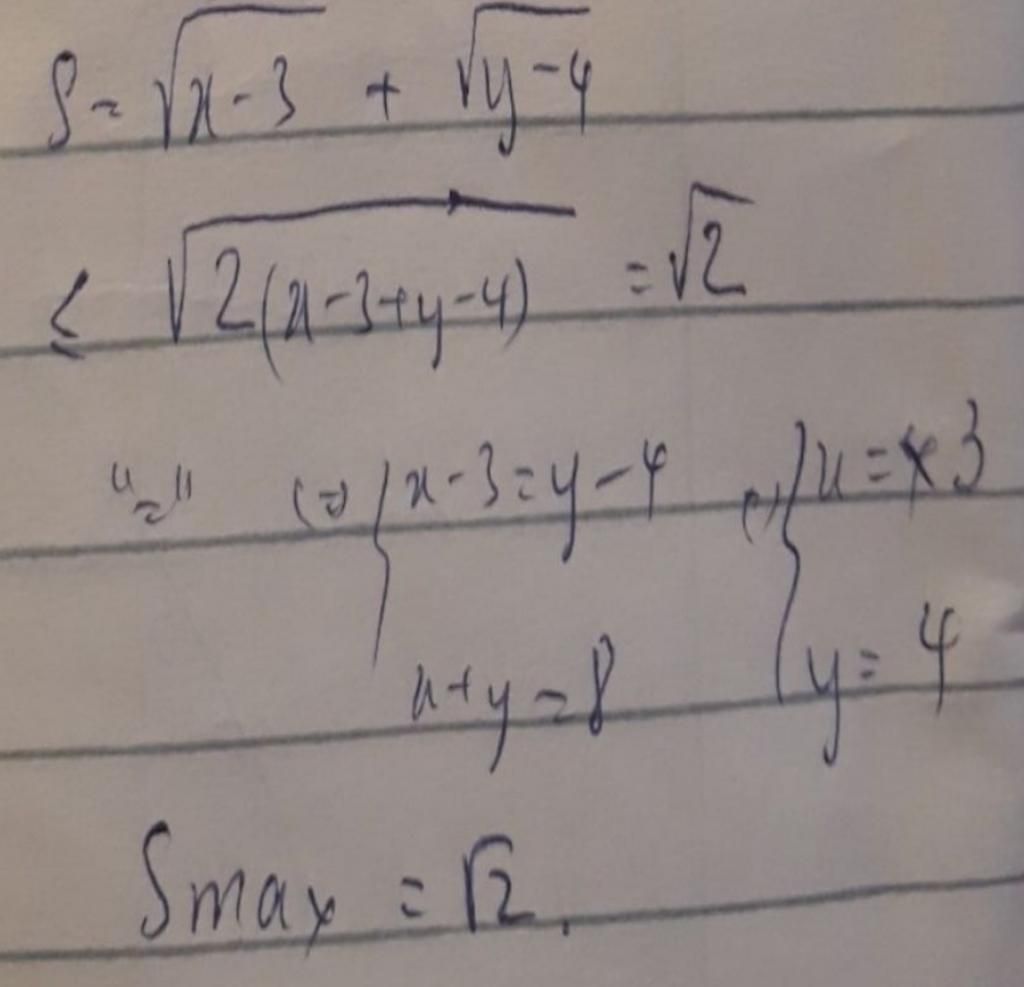 S = √(x-3) + √(y-4)
≤ √(2(x-3+y-4)) = √2
"=" (=) { x-3 = y-4 (=) { x = 3
x+y = 8 y = 4
Smax = √2.